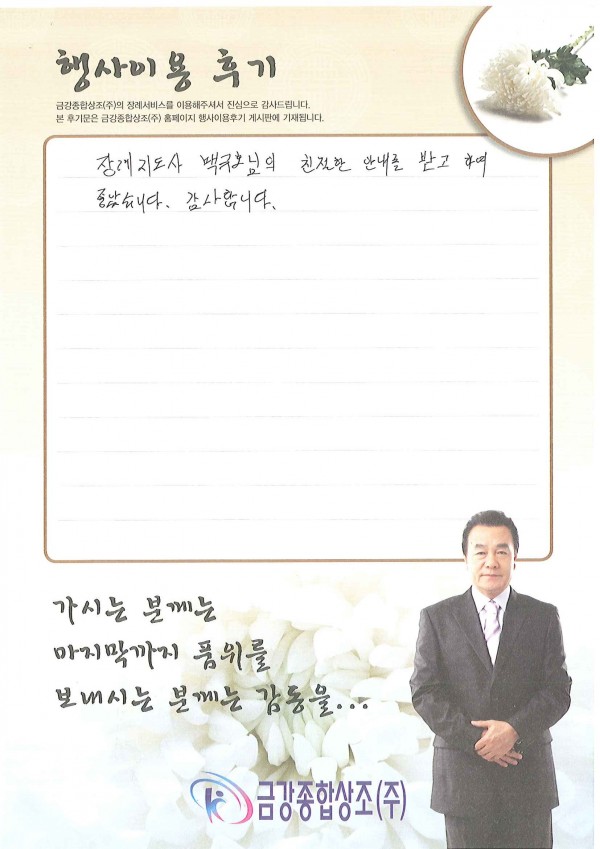 행사이용 후기
금강종합상조(주)의 장례서비스를 이용해주셔서 진심으로 감사드립니다.
본 후기문은 금강종합상조(주) 홈페이지 행사이용후기 게시판에 기재됩니다.
장례지도사 친절한 안내를 받고 하여
좋았습니다. 감사합니다.
가시는 분께는
마지막까지 품위를
보내시는 분께는 감동을...
금강종합상조(주)